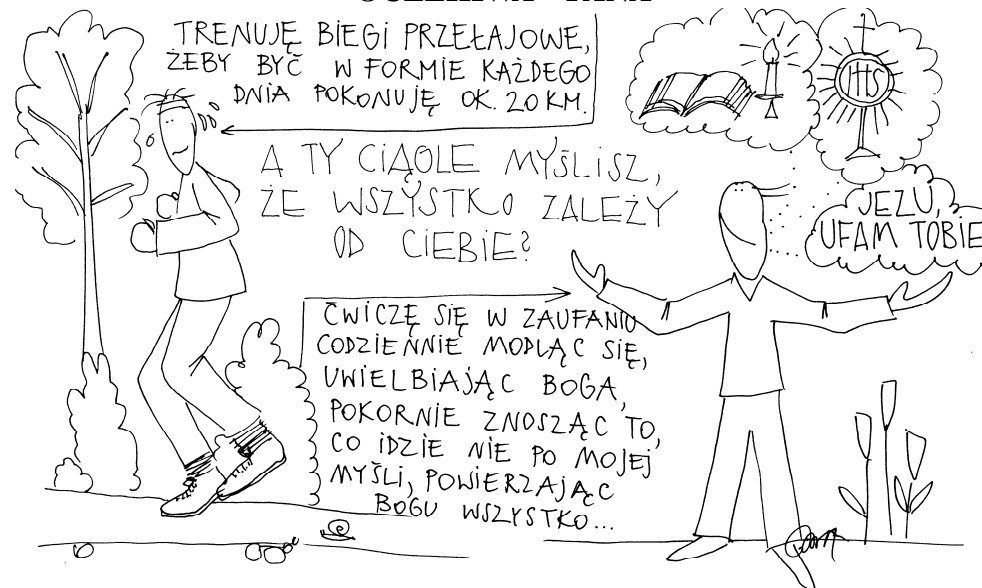 TRENUJĘ BIEGI PRZEŁAJOWE,
ŻEBY BYĆ W FORMIE KAŻDEGO
DNIA POKONUJĘ OK. 20 KM.
A TY CIĄGLE MYŚLISZ,
ŻE WSZYSTKO ZALEŻY
OD CIEBIE?
IHS
JEZU,
UFAM TOBIE
ĆWICZĘ SIĘ W ZAUFANIU
CODZIENNIE MODLĄC SIĘ,
UWIELBIAJĄC BOGA,
POKORNIE ZNOSZĄC TO,
CO IDZIE NIE PO MOJEJ
MYŚLI, POWIERZAJĄC
BOGU WSZYSTKO...